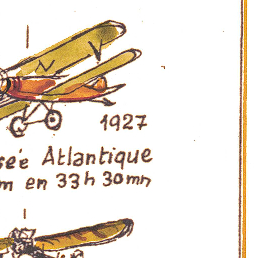 1927
sée Atlantique
m en 33h 30mn